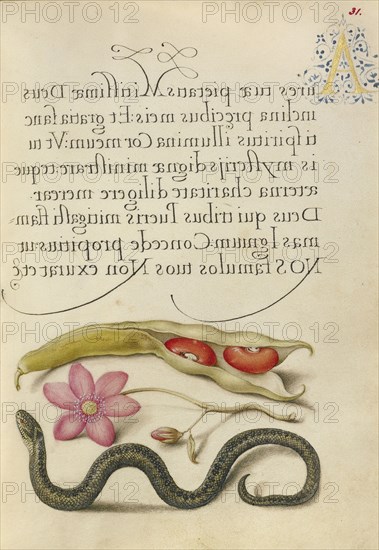 31.
Aures tuæ pietatis Mitissimæ Deus
inclina precibus meis: Et gratia sanc
ti spiritus illumina Cor meum: Vt tu
is mysterijs dignæ ministrare teque
æterna charitate diligere merear.
Deus qui tribus Pueris mitigasti flam
mas Ignium: Concede propitius: ut
NOS famulos tuos Non exurat etc
PHOTO12